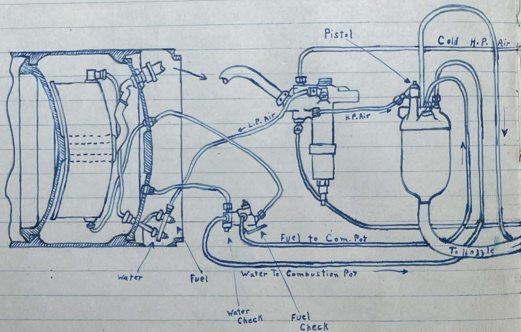 Pistol
Cold H.P. Air
L.P. Air
H.P. Air
Fuel to Com. Pot
To Nozzle
Water To Combustion Pot
Water
Fuel
Water
Check
Fuel
Check